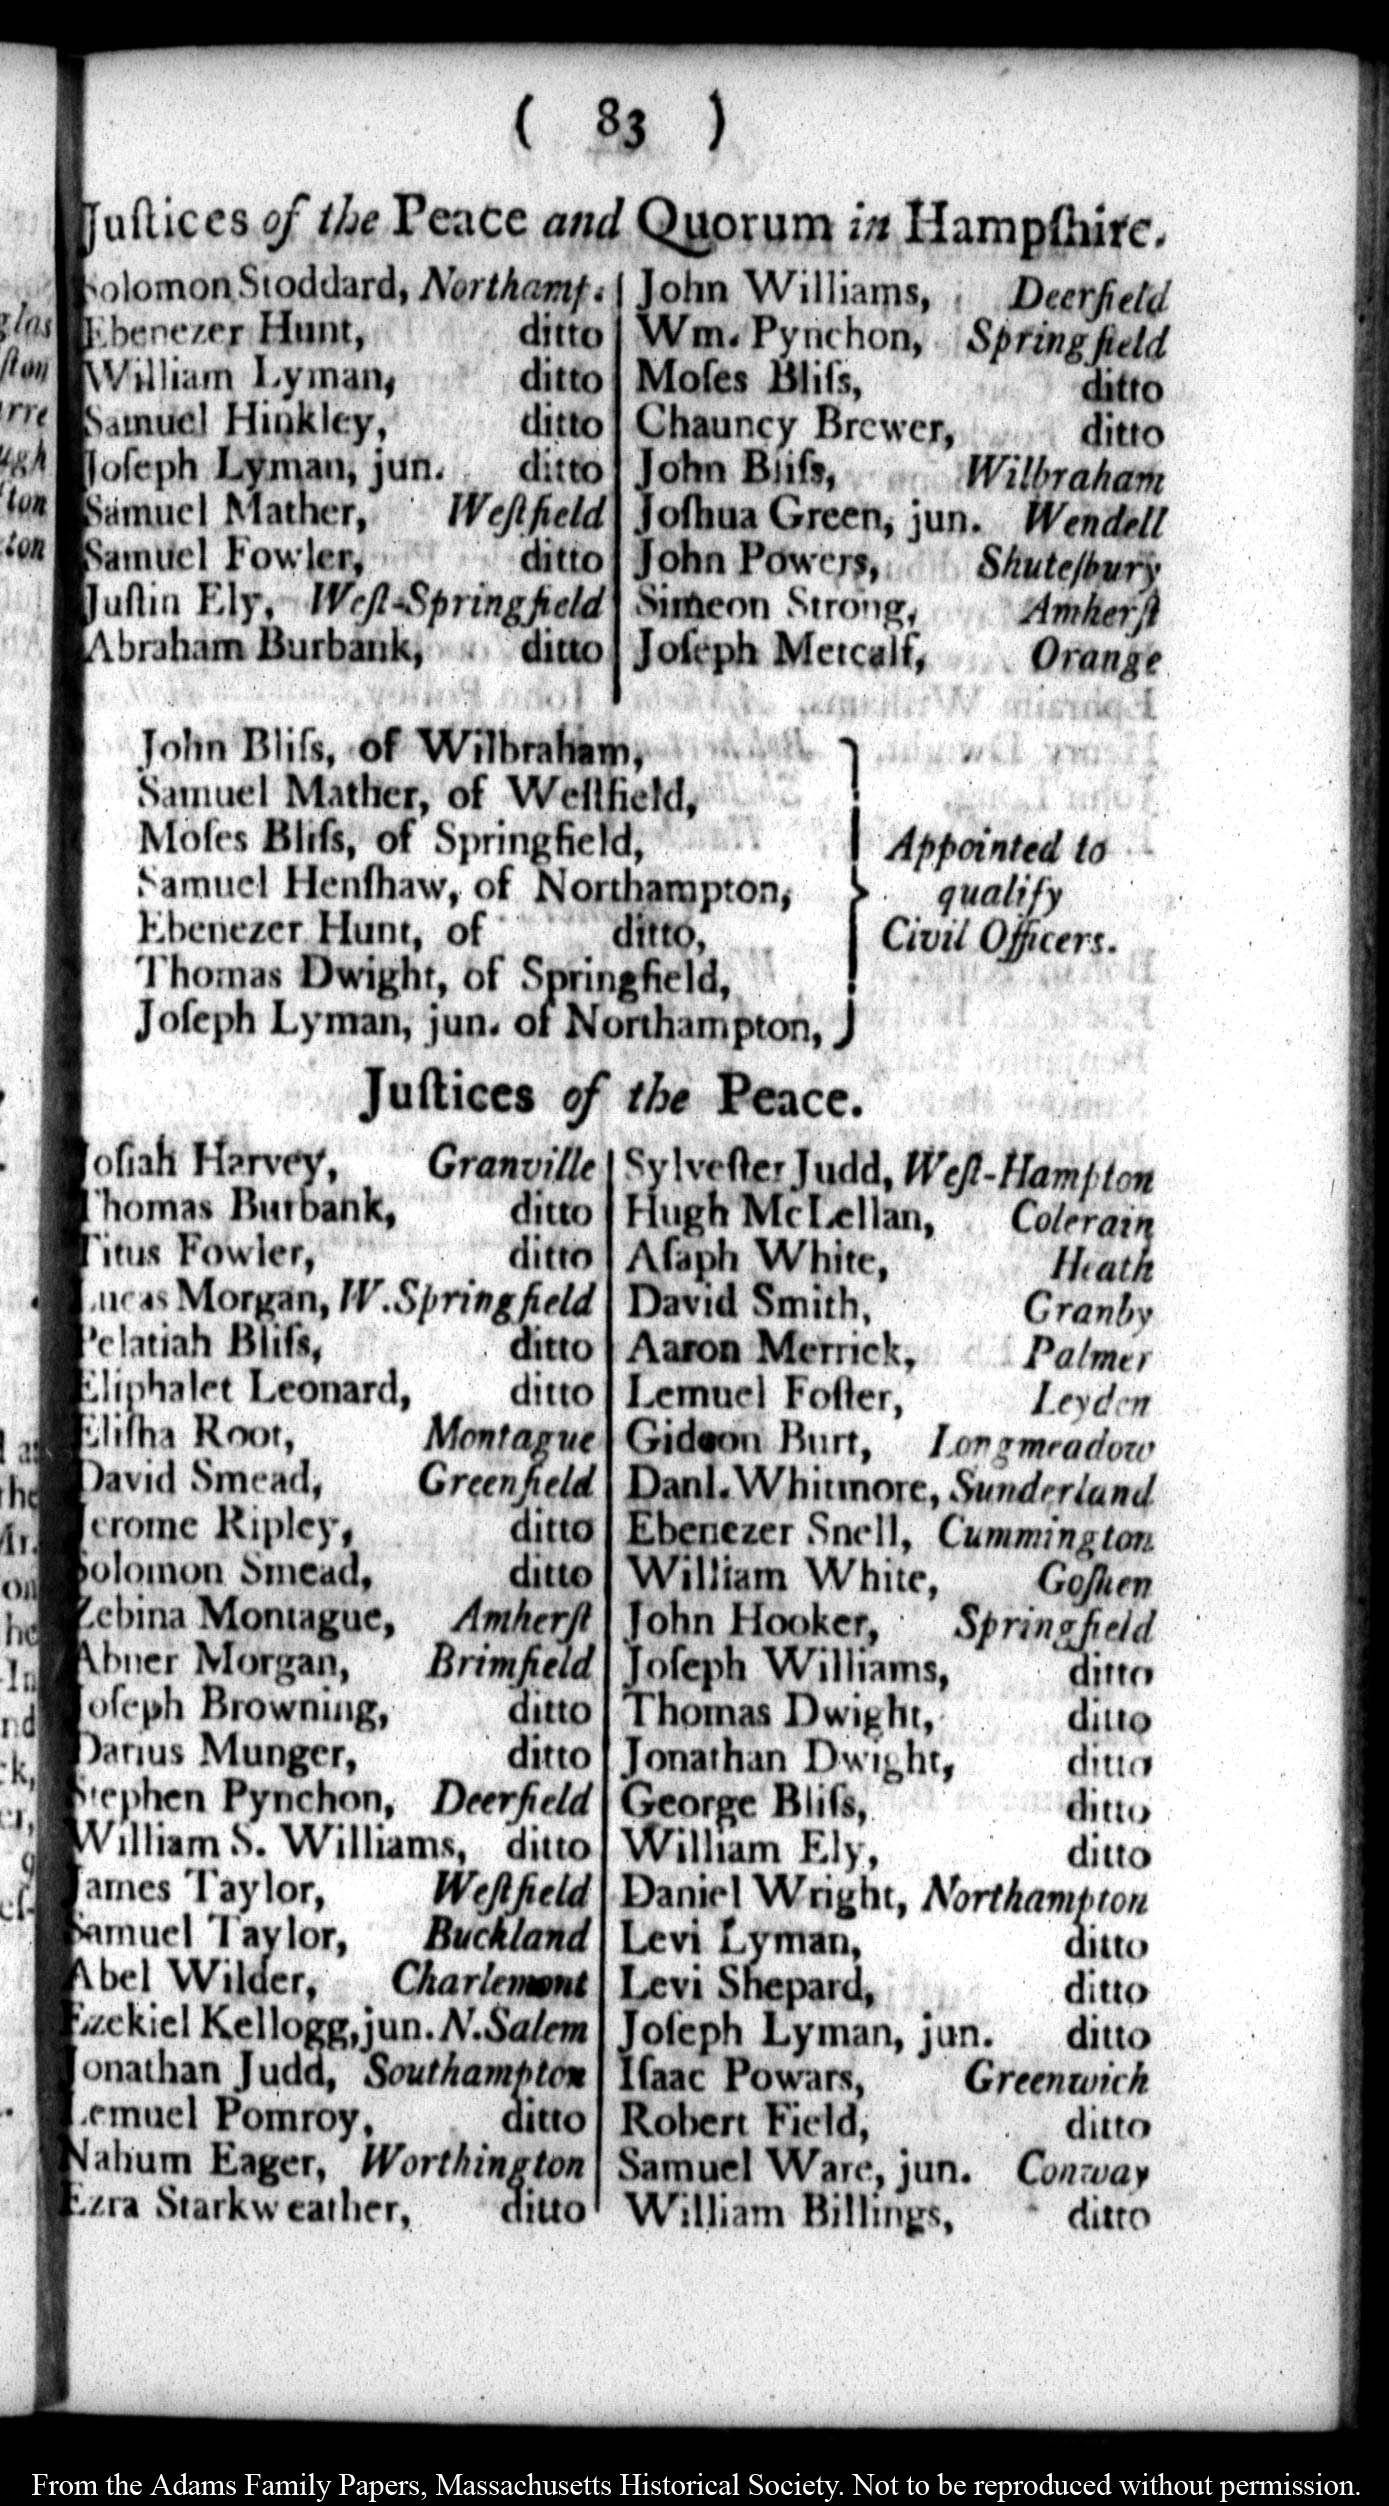 ( 83 )
Juſtices of the Peace and Quorum in Hampſhire.
Solomon Stoddard, Northamp.
Ebenezer Hunt, ditto
William Lyman, ditto
Samuel Hinkley, ditto
Joſeph Lyman, jun. ditto
Samuel Mather, Weſtfield
Samuel Fowler, ditto
Juſtin Ely, Weſt-Springfield
Abraham Burbank, ditto
John Williams, Deerfield
Wm. Pynchon, Springfield
Moſes Bliſs, ditto
Chauncy Brewer, ditto
John Bliſs, Wilbraham
Joſhua Green, jun. Wendell
John Powers, Shuteſbury
Simeon Strong, Amherſt
Joſeph Metcalf, Orange
John Bliſs, of Wilbraham,
Samuel Mather, of Weſtfield,
Moſes Bliſs, of Springfield,
Samuel Henſhaw, of Northampton,
Ebenezer Hunt, of ditto,
Thomas Dwight, of Springfield,
Joſeph Lyman, jun. of Northampton,
Appointed to
qualify
Civil Officers.
Juſtices of the Peace.
Joſiah Harvey, Granville
Thomas Burbank, ditto
Titus Fowler, ditto
Lucas Morgan, W.Springfield
Pelatiah Bliſs, ditto
Eliphalet Leonard, ditto
Eliſha Root, Montague
David Smead, Greenfield
Jerome Ripley, ditto
Solomon Smead, ditto
Zebina Montague, Amherſt
Abner Morgan, Brimfield
Joſeph Browning, ditto
Darius Munger, ditto
Stephen Pynchon, Deerfield
William S. Williams, ditto
James Taylor, Weſtfield
Samuel Taylor, Buckland
Abel Wilder, Charlemont
Ezekiel Kellogg, jun. N.Salem
Jonathan Judd, Southampton
Lemuel Pomroy, ditto
Nahum Eager, Worthington
Ezra Starkweather, ditto
Sylveſter Judd, Weſt-Hampton
Hugh McLellan, Colerain
Aſaph White, Heath
David Smith, Granby
Aaron Merrick, Palmer
Lemuel Foſter, Leyden
Gideon Burt, Longmeadow
Danl. Whitmore, Sunderland
Ebenezer Snell, Cummington
William White, Goſhen
John Hooker, Springfield
Joſeph Williams, ditto
Thomas Dwight, ditto
Jonathan Dwight, ditto
George Bliſs, ditto
William Ely, ditto
Daniel Wright, Northampton
Levi Lyman, ditto
Levi Shepard, ditto
Joſeph Lyman, jun. ditto
Iſaac Powars, Greenwich
Robert Field, ditto
Samuel Ware, jun. Conway
William Billings, ditto
From the Adams Family Papers, Massachusetts Historical Society. Not to be reproduced without permission.